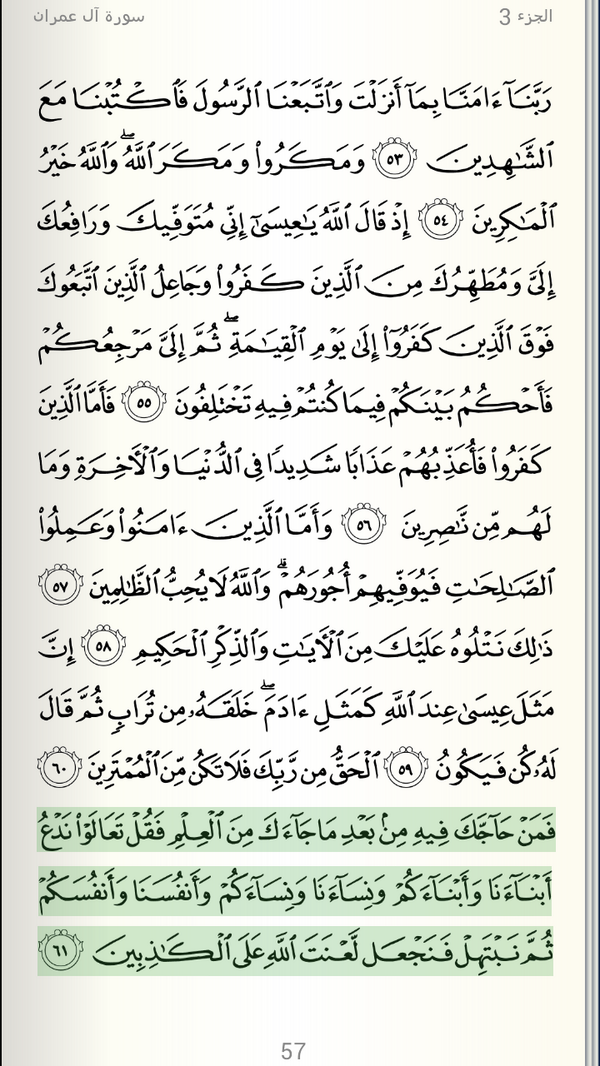 الجزء 3
سورة آل عمران
رَبَّنَآ ءَامَنَّا بِمَآ أَنزَلْتَ وَٱتَّبَعْنَا ٱلرَّسُولَ فَٱكْتُبْنَا مَعَ
ٱلشَّٰهِدِينَ ٥٣ وَمَكَرُوا۟ وَمَكَرَ ٱللَّهُ ۖ وَٱللَّهُ خَيْرُ
ٱلْمَٰكِرِينَ ٥٤ إِذْ قَالَ ٱللَّهُ يَٰعِيسَىٰٓ إِنِّى مُتَوَفِّيكَ وَرَافِعُكَ
إِلَىَّ وَمُطَهِّرُكَ مِنَ ٱلَّذِينَ كَفَرُوا۟ وَجَاعِلُ ٱلَّذِينَ ٱتَّبَعُوكَ
فَوْقَ ٱلَّذِينَ كَفَرُوٓا۟ إِلَىٰ يَوْمِ ٱلْقِيَٰمَةِ ۖ ثُمَّ إِلَىَّ مَرْجِعُكُمْ
فَأَحْكُمُ بَيْنَكُمْ فِيمَا كُنتُمْ فِيهِ تَخْتَلِفُونَ ٥٥ فَأَمَّا ٱلَّذِينَ
كَفَرُوا۟ فَأُعَذِّبُهُمْ عَذَابًا شَدِيدًا فِى ٱلدُّنْيَا وَٱلْءَاخِرَةِ وَمَا
لَهُم مِّن نَّٰصِرِينَ ٥٦ وَأَمَّا ٱلَّذِينَ ءَامَنُوا۟ وَعَمِلُوا۟
ٱلصَّٰلِحَٰتِ فَيُوَفِّيهِمْ أُجُورَهُمْ ۗ وَٱللَّهُ لَا يُحِبُّ ٱلظَّٰلِمِينَ ٥٧
ذَٰلِكَ نَتْلُوهُ عَلَيْكَ مِنَ ٱلْءَايَٰتِ وَٱلذِّكْرِ ٱلْحَكِيمِ ٥٨ إِنَّ
مَثَلَ عِيسَىٰ عِندَ ٱللَّهِ كَمَثَلِ ءَادَمَ ۖ خَلَقَهُۥ مِن تُرَابٍ ثُمَّ قَالَ
لَهُۥ كُن فَيَكُونُ ٥٩ ٱلْحَقُّ مِن رَّبِّكَ فَلَا تَكُن مِّنَ ٱلْمُمْتَرِينَ ٦٠
فَمَنْ حَآجَّكَ فِيهِ مِنۢ بَعْدِ مَا جَآءَكَ مِنَ ٱلْعِلْمِ فَقُلْ تَعَالَوْا۟ نَدْعُ
أَبْنَآءَنَا وَأَبْنَآءَكُمْ وَنِسَآءَنَا وَنِسَآءَكُمْ وَأَنفُسَنَا وَأَنفُسَكُمْ
ثُمَّ نَبْتَهِلْ فَنَجْعَل لَّعْنَتَ ٱللَّهِ عَلَى ٱلْكَٰذِبِينَ ٦١
57